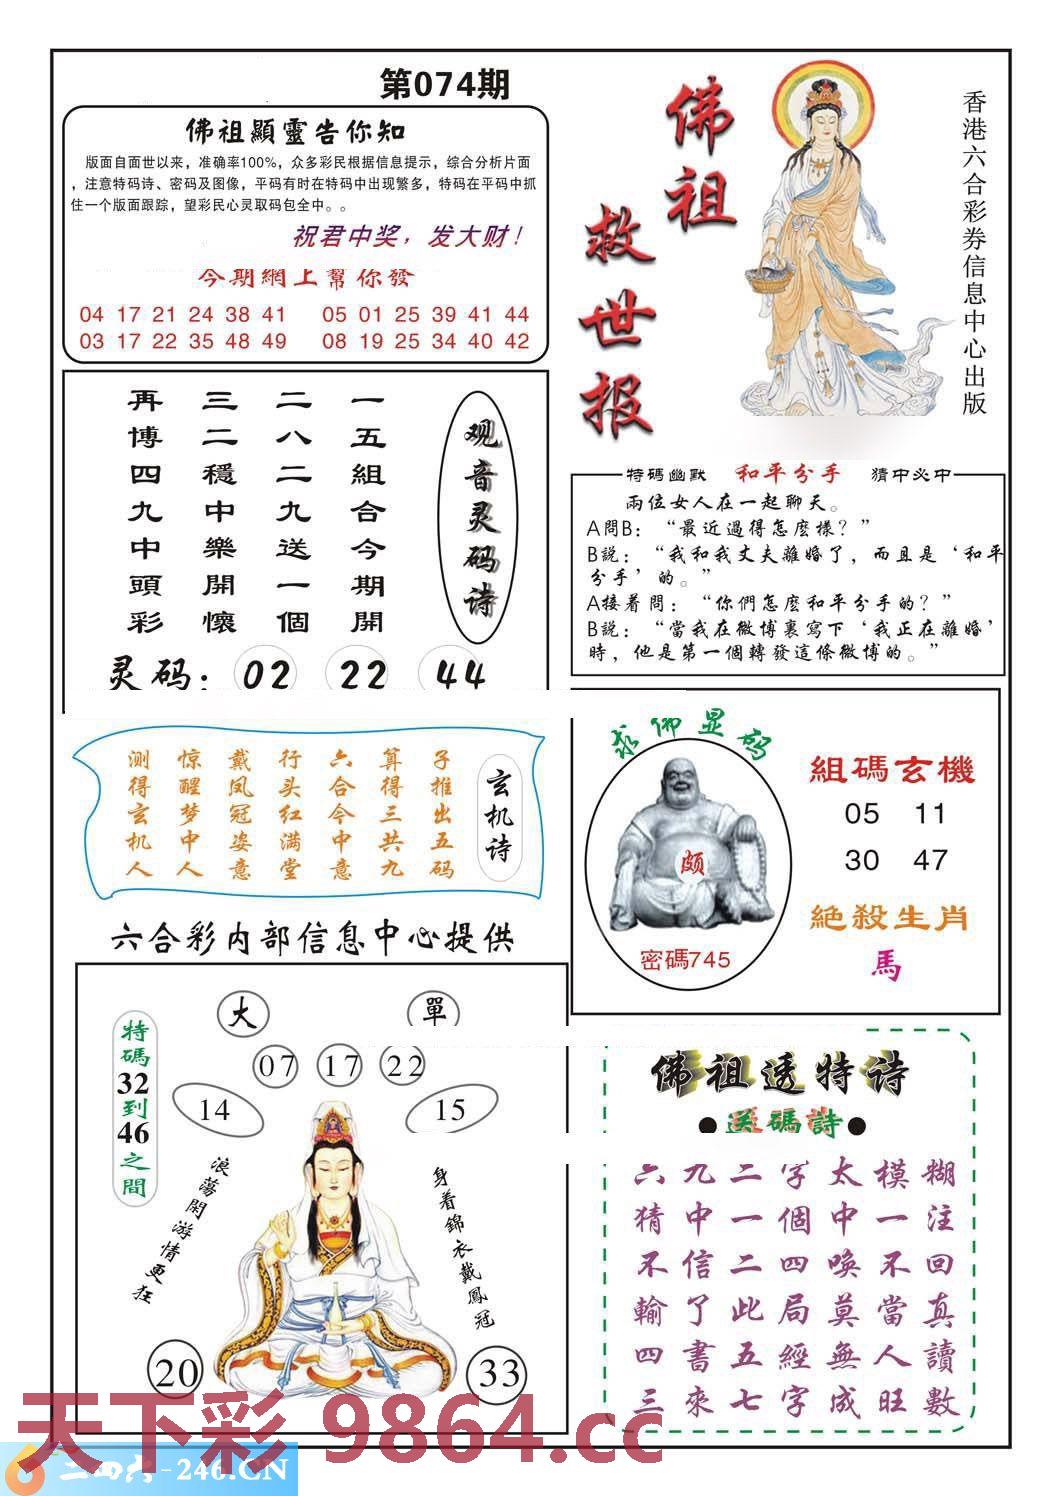 第074期
佛祖顯靈告你知
版面自面世以来，准确率100%，众多彩民根据信息提示，综合分析片面
，注意特码诗、密码及图像，平码有时在特码中出现繁多，特码在平码中抓
住一个版面跟踪，望彩民心灵取码包全中。。
祝君中奖，发大财！
今期網上幫你發
04 17 21 24 38 41 05 01 25 39 41 44
03 17 22 35 48 49 08 19 25 34 40 42
佛祖
救世报
香港六合彩券信息中心出版
观音灵码诗
一五組合今期開
二八二九送一個
三二穩中樂開懷
再博四九中頭彩
灵码：02 22 44
特碼幽默 和平分手 猜中必中
兩位女人在一起聊天。
A問B：“最近過得怎麽樣？”
B説：“我和我丈夫離婚了，而且是‘和平
分手’的。”
A接着問：“你們怎麽和平分手的？”
B説：“當我在微博裏寫下‘我正在離婚’
時，他是第一個轉發這條微博的。”
玄机诗
子推出五码
算得三共九
六合今中意
行头红满堂
戴凤冠姿意
惊醒梦中人
测得玄机人
求佛显码
颇
密碼745
組碼玄機
05 11
30 47
絶殺生肖
馬
六合彩内部信息中心提供
大 單
07 17 22
14 15
特碼32到46之間
浪蕩閑游情更狂
身着錦衣戴鳳冠
20 33
佛祖透特诗
●送碼詩●
糊注回真讀數
模一不當人旺
太中唤莫無成
字個四局經字
二一二此五七
九中信了書來
六猜不輸四三
天下彩 9864.cc
二四六-246.CN